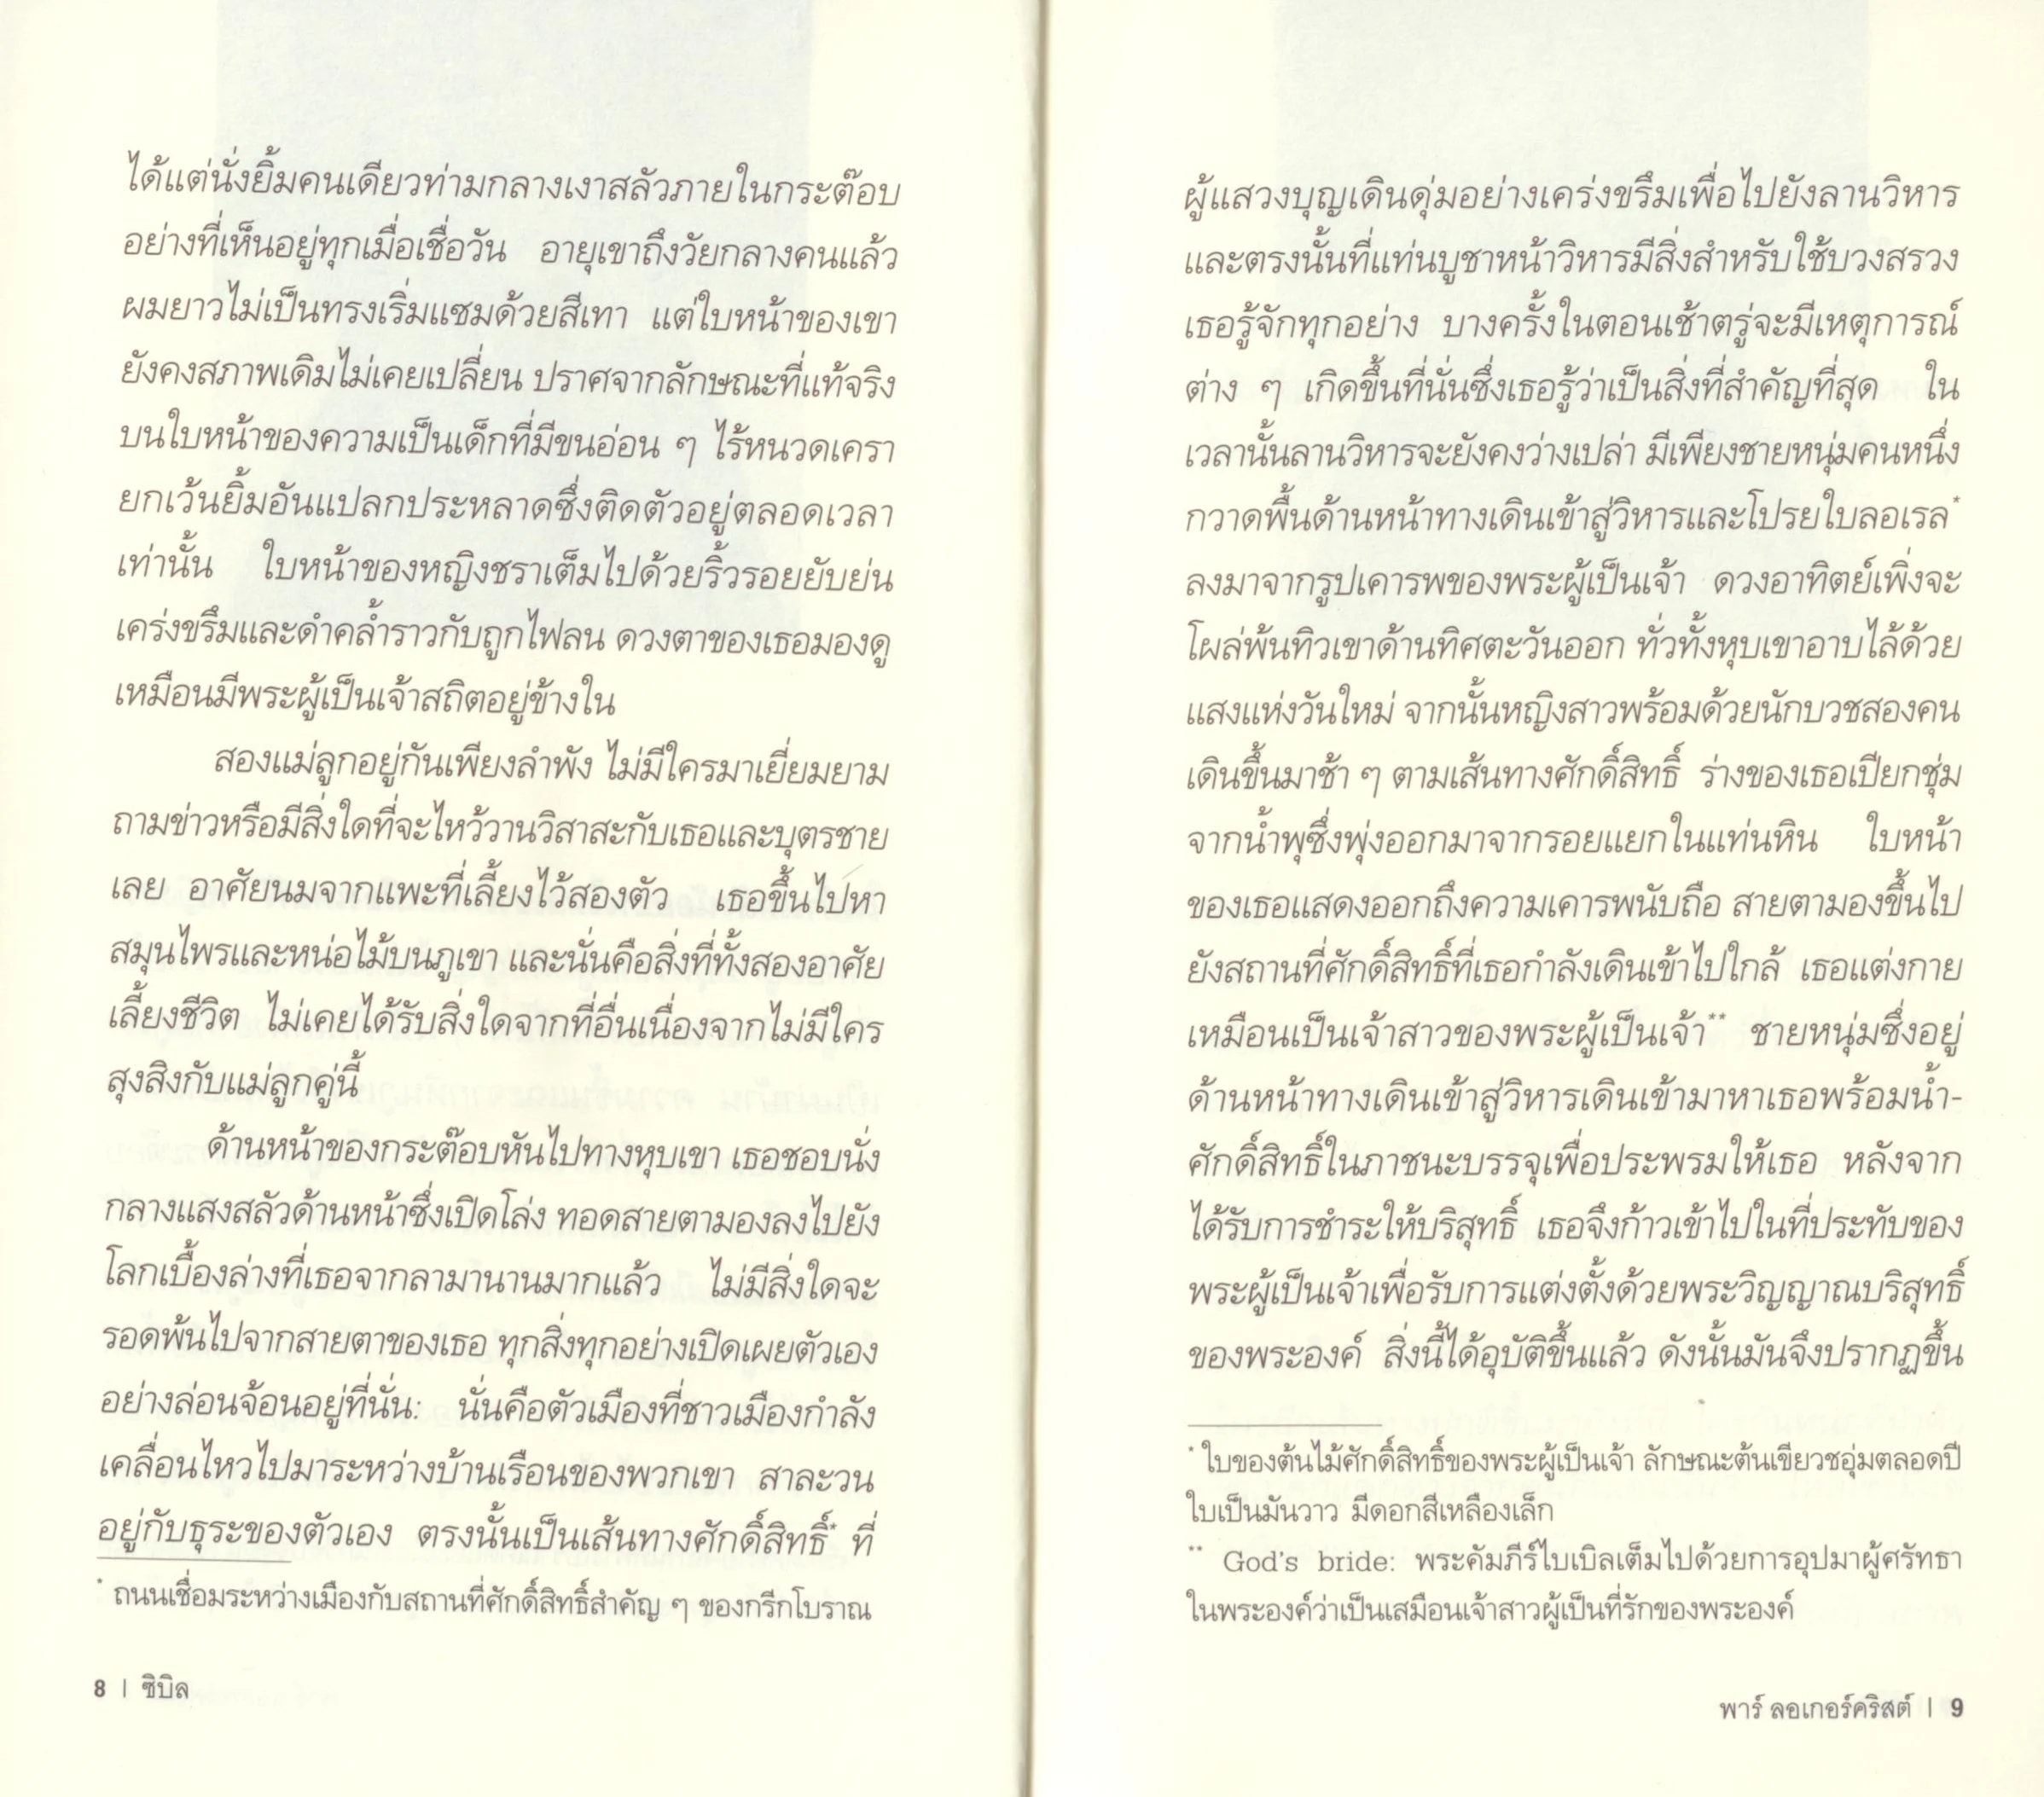 ได้แต่นั่งยิ้มคนเดียวท่ามกลางเงาสลัวภายในกระต๊อบ
อย่างที่เห็นอยู่ทุกเมื่อเชื่อวัน อายุเขาถึงวัยกลางคนแล้ว
ผมยาวไม่เป็นทรงเริ่มแซมด้วยสีเทา แต่ใบหน้าของเขา
ยังคงสภาพเดิมไม่เคยเปลี่ยน ปราศจากลักษณะที่แท้จริง
บนใบหน้าของความเป็นเด็กที่มีขนอ่อน ๆ ไร้หนวดเครา
ยกเว้นยิ้มอันแปลกประหลาดซึ่งติดตัวอยู่ตลอดเวลา
เท่านั้น ใบหน้าของหญิงชราเต็มไปด้วยริ้วรอยยับย่น
เคร่งขรึมและดำคล้ำราวกับถูกไฟลน ดวงตาของเธอมองดู
เหมือนมีพระผู้เป็นเจ้าสถิตอยู่ข้างใน
สองแม่ลูกอยู่กันเพียงลำพัง ไม่มีใครมาเยี่ยมยาม
ถามข่าวหรือมีสิ่งใดที่จะไหว้วานวิสาสะกับเธอและบุตรชาย
เลย อาศัยนมจากแพะที่เลี้ยงไว้สองตัว เธอขึ้นไปหา
สมุนไพรและหน่อไม้บนภูเขา และนั่นคือสิ่งที่ทั้งสองอาศัย
เลี้ยงชีวิต ไม่เคยได้รับสิ่งใดจากที่อื่นเนื่องจากไม่มีใคร
สุงสิงกับแม่ลูกคู่นี้
ด้านหน้าของกระต๊อบหันไปทางหุบเขา เธอชอบนั่ง
กลางแสงสลัวด้านหน้าซึ่งเปิดโล่ง ทอดสายตามองลงไปยัง
โลกเบื้องล่างที่เธอจากลามานานมากแล้ว ไม่มีสิ่งใดจะ
รอดพ้นไปจากสายตาของเธอ ทุกสิ่งทุกอย่างเปิดเผยตัวเอง
อย่างล่อนจ้อนอยู่ที่นั่น: นั่นคือตัวเมืองที่ชาวเมืองกำลัง
เคลื่อนไหวไปมาระหว่างบ้านเรือนของพวกเขา สาละวน
อยู่กับธุระของตัวเอง ตรงนั้นเป็นเส้นทางศักดิ์สิทธิ์* ที่
* ถนนเชื่อมระหว่างเมืองกับสถานที่ศักดิ์สิทธิ์สำคัญ ๆ ของกรีกโบราณ
8 | ซิบิล
ผู้แสวงบุญเดินดุ่มอย่างเคร่งขรึมเพื่อไปยังลานวิหาร
และตรงนั้นที่แท่นบูชาหน้าวิหารมีสิ่งสำหรับใช้บวงสรวง
เธอรู้จักทุกอย่าง บางครั้งในตอนเช้าตรู่จะมีเหตุการณ์
ต่าง ๆ เกิดขึ้นที่นั่นซึ่งเธอรู้ว่าเป็นสิ่งที่สำคัญที่สุด ใน
เวลานั้นลานวิหารจะยังคงว่างเปล่า มีเพียงชายหนุ่มคนหนึ่ง
กวาดพื้นด้านหน้าทางเดินเข้าสู่วิหารและโปรยใบลอเรล*
ลงมาจากรูปเคารพของพระผู้เป็นเจ้า ดวงอาทิตย์เพิ่งจะ
โผล่พ้นทิวเขาด้านทิศตะวันออก ทั่วทั้งหุบเขาอาบไล้ด้วย
แสงแห่งวันใหม่ จากนั้นหญิงสาวพร้อมด้วยนักบวชสองคน
เดินขึ้นมาช้า ๆ ตามเส้นทางศักดิ์สิทธิ์ ร่างของเธอเปียกชุ่ม
จากน้ำพุซึ่งพุ่งออกมาจากรอยแยกในแท่นหิน ใบหน้า
ของเธอแสดงออกถึงความเคารพนับถือ สายตามองขึ้นไป
ยังสถานที่ศักดิ์สิทธิ์ที่เธอกำลังเดินเข้าไปใกล้ เธอแต่งกาย
เหมือนเป็นเจ้าสาวของพระผู้เป็นเจ้า** ชายหนุ่มซึ่งอยู่
ด้านหน้าทางเดินเข้าสู่วิหารเดินเข้ามาหาเธอพร้อมน้ำ-
ศักดิ์สิทธิ์ในภาชนะบรรจุเพื่อประพรมให้เธอ หลังจาก
ได้รับการชำระให้บริสุทธิ์ เธอจึงก้าวเข้าไปในที่ประทับของ
พระผู้เป็นเจ้าเพื่อรับการแต่งตั้งด้วยพระวิญญาณบริสุทธิ์
ของพระองค์ สิ่งนี้ได้อุบัติขึ้นแล้ว ดังนั้นมันจึงปรากฏขึ้น
* ใบของต้นไม้ศักดิ์สิทธิ์ของพระผู้เป็นเจ้า ลักษณะต้นเขียวชอุ่มตลอดปี
ใบเป็นมันวาว มีดอกสีเหลืองเล็ก
** God's bride: พระคัมภีร์ไบเบิลเต็มไปด้วยการอุปมาผู้ศรัทธา
ในพระองค์ว่าเป็นเสมือนเจ้าสาวผู้เป็นที่รักของพระองค์
พาร์ ลอเกอร์คริสต์ | 9